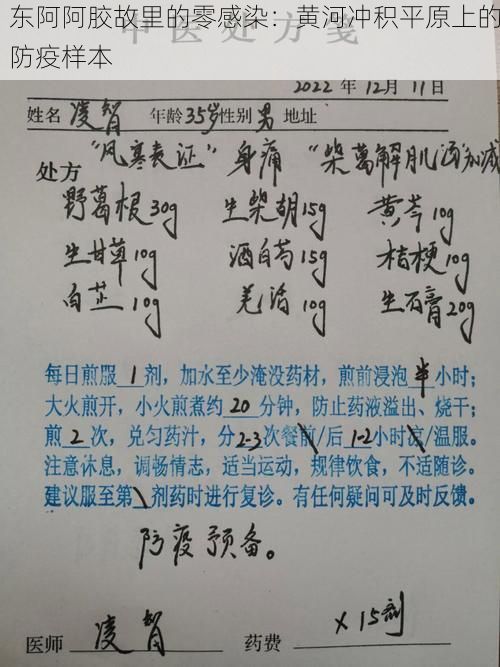 东阿阿胶故里的零感染：黄河冲积平原上的
防疫样本
中医处方笺
2022年12月11日
姓名 凌智 年龄35岁性别男 地址
处方 "风寒表证" 身痛 "柴葛解肌汤加减
野葛根30g 生柴胡15g 黄芩10g
生甘草10g 酒白芍15g 桔梗10g
白芷10g 羌活10g 生石膏20g
每日煎服1剂，加水至少淹没药材，煎前浸泡半小时；
大火煎开，小火煎煮约20分钟，防止药液溢出、烧干；
煎2次，兑匀药汁，分2-3次餐前/后1-2小时凉/温服。
注意休息，调畅情志，适当运动，规律饮食，不适随诊。
建议服至第\剂药时进行复诊。有任何疑问可及时反馈。
防疫预备。
医师 凌智 药费 ×15剂